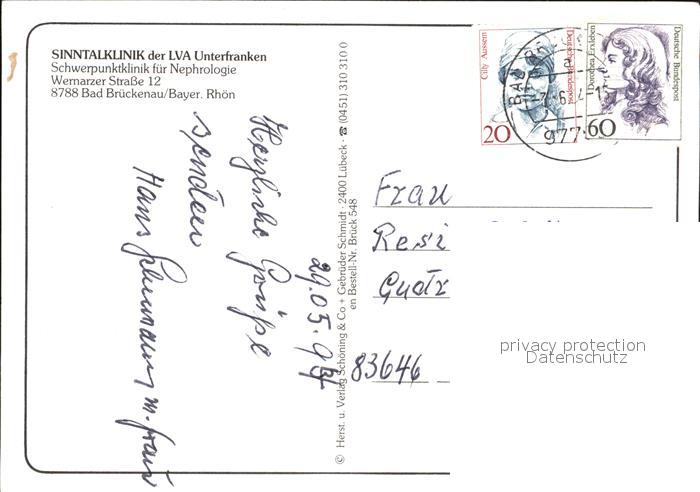 SINNTALKLINIK der LVA Unterfranken
Schwerpunktklinik für Nephrologie
Wernarzer Straße 12
8788 Bad Brückenau/Bayer. Rhön
Herzliche Grüße
senden
Hans m. Frau
29.05.94
© Herst. u. Verlag Schöning & Co + Gebrüder Schmidt · 2400 Lübeck · ☎ (0451) 310 310 0
en Bestell-Nr. Brück 548
Cilly Aussem
Deutsche Bundespost
20
Dorothea Erxleben
Deutsche Bundespost
60
BAD
977
Frau
Resi
83646
privacy protection
Datenschutz